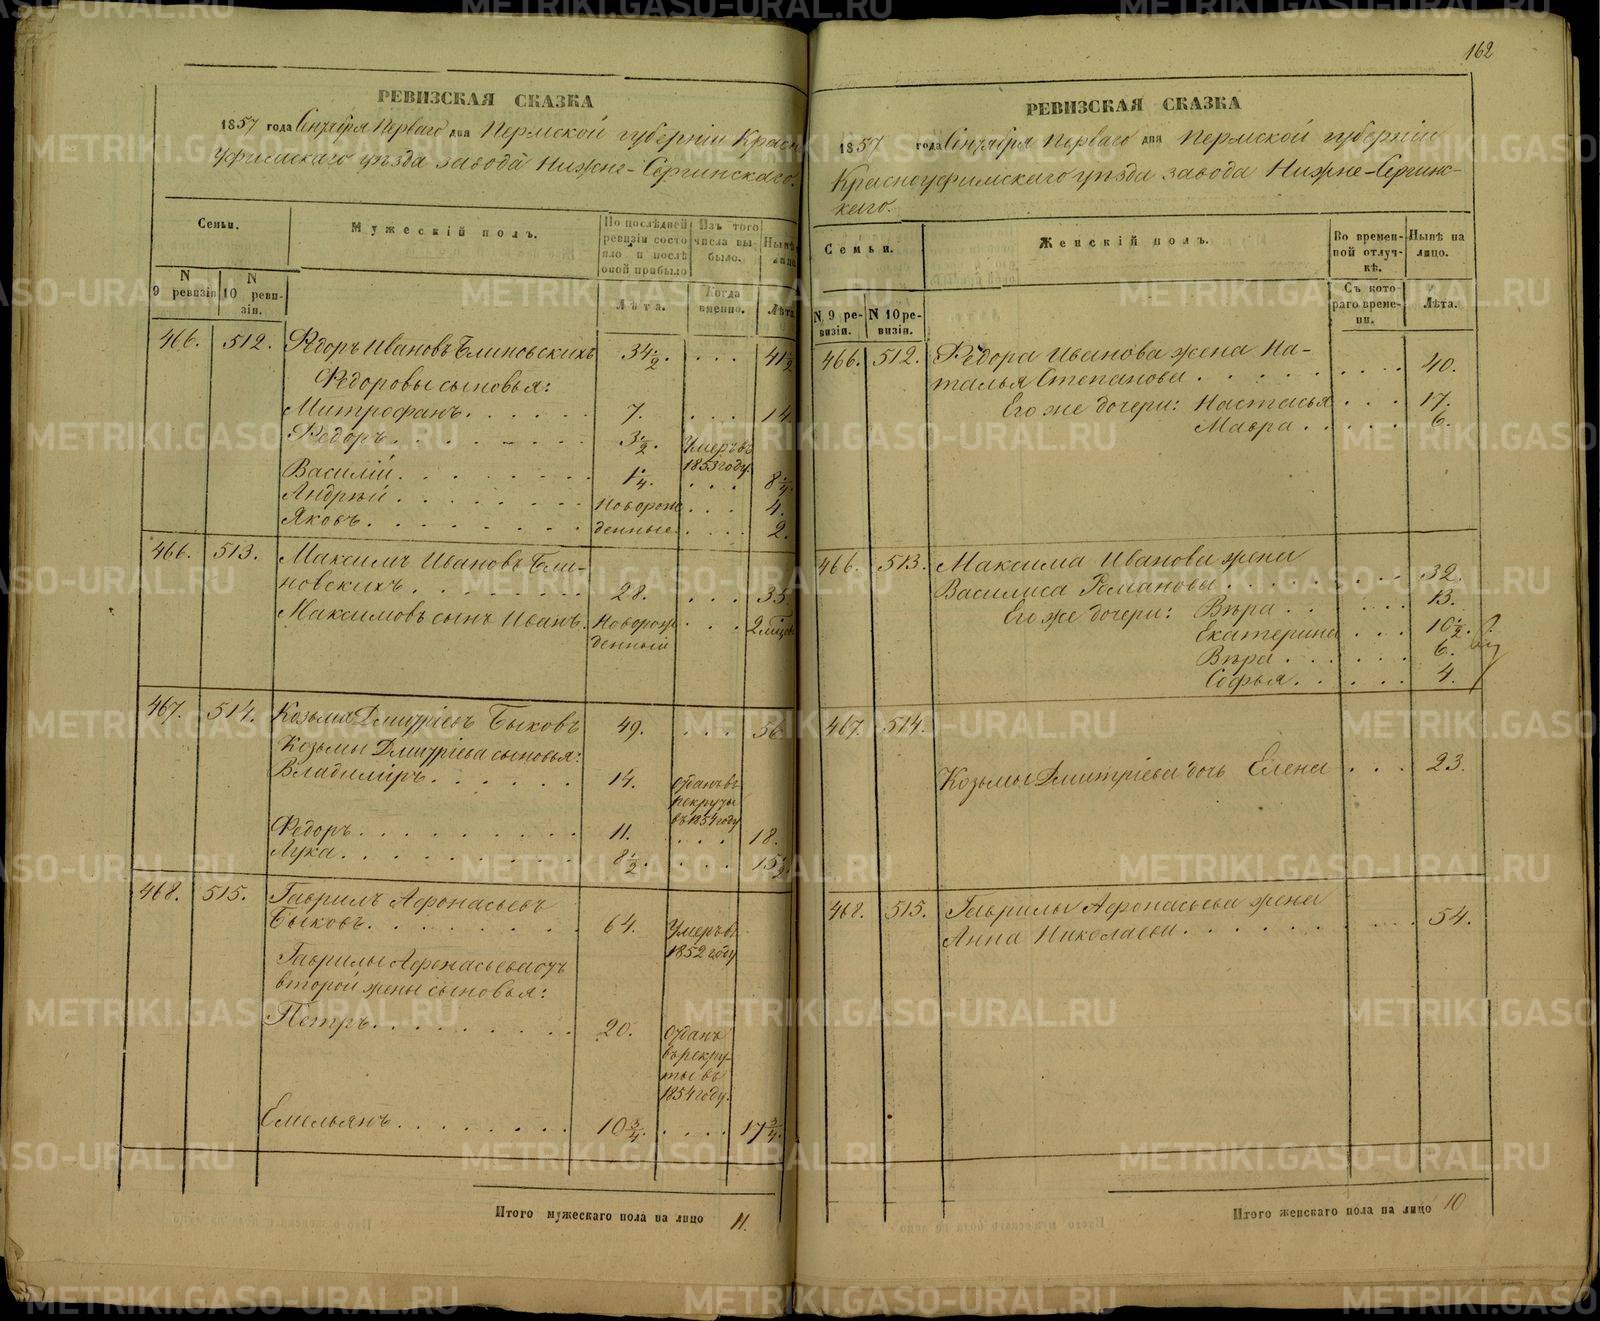 162
РЕВИЗСКАЯ СКАЗКА
1857 года Сентября Перваго дня Пермской губерніи Красно
уфимскаго уѣзда завода Нижне-Сергинскаго.
Семьи.
Мужескій полъ.
По послѣдней ревизіи состояло и послѣ оной прибыло
Изъ того числа выбыло.
Нынѣ на лицо
N 9 ревизіи
N 10 ревизіи.
Лѣта.
Когда именно.
Лѣта
466. 512. Ѳедоръ Ивановъ Блиновскихъ 34 1/2. . . . 41 1/2
Ѳедоровы сыновья:
Митрофанъ. 7. . . . 14
Ѳедоръ. 3 1/2. Умеръ въ 1853 году.
Василій. 1/4. . . . 8 1/4.
Андрей. Новорож . . . 4.
Яковъ. денные. . . . 2.
466. 513. Максимъ Ивановъ Бли-
новскихъ. 28. . . . 35.
Максимовъ сынъ Иванъ. Новорож . . . 2
денный
467. 514. Козьма Дмитріевъ Быковъ 49. . . . 56.
Козьмы Дмитріева сыновья:
Владимiръ. 14. Отданъ въ рекруты въ 1854 году
Ѳедоръ. 11. . . . 18.
Лука. 8 1/2. . . . 15 1/2
468. 515. Гаврилъ Афонасьевъ
Быковъ. 64. Умеръ въ 1852 году
Гаврилы Афонасьева отъ
второй жены сыновья:
Петръ. 20. Отданъ въ рекру-
ты въ
1854 году.
Емельянъ. 10 3/4. . . . 17 3/4.
Итого мужескаго пола на лицо 11.
РЕВИЗСКАЯ СКАЗКА
1857 года Сентября Перваго дня Пермской губерніи
Красноуфимскаго уѣзда завода Нижне-Сергинс-
каго.
Семьи.
Женскій полъ.
Во временной отлучкѣ.
Нынѣ на лицо.
N 9 ревизіи.
N 10 ревизіи.
Съ котораго времени.
Лѣта.
466. 512. Ѳедора Иванова жена На-
талья Степанова . . . 40.
Его же дочери: Настасья . . . 17.
Мавра . . . 6.
466. 513. Максима Иванова жена
Василиса Романовы . . . 32.
Его же дочери: Вѣра . . . 13.
Екатерина . . . 10 1/2.
Вѣра . . . 6.
Софья . . . 4.
467. 514.
Козьмы Дмитріева дочь Елена . . . 23.
468. 515. Гаврилы Афонасьева жена
Анна Николаева . . . 54.
Итого женскаго пола на лицо 10
METRIKI.GASO-URAL.RU